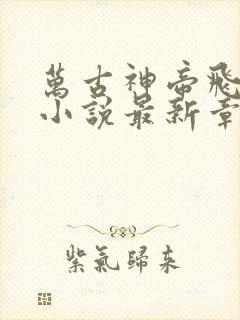 萬古神帝飛
小說最新章
紫氣歸來